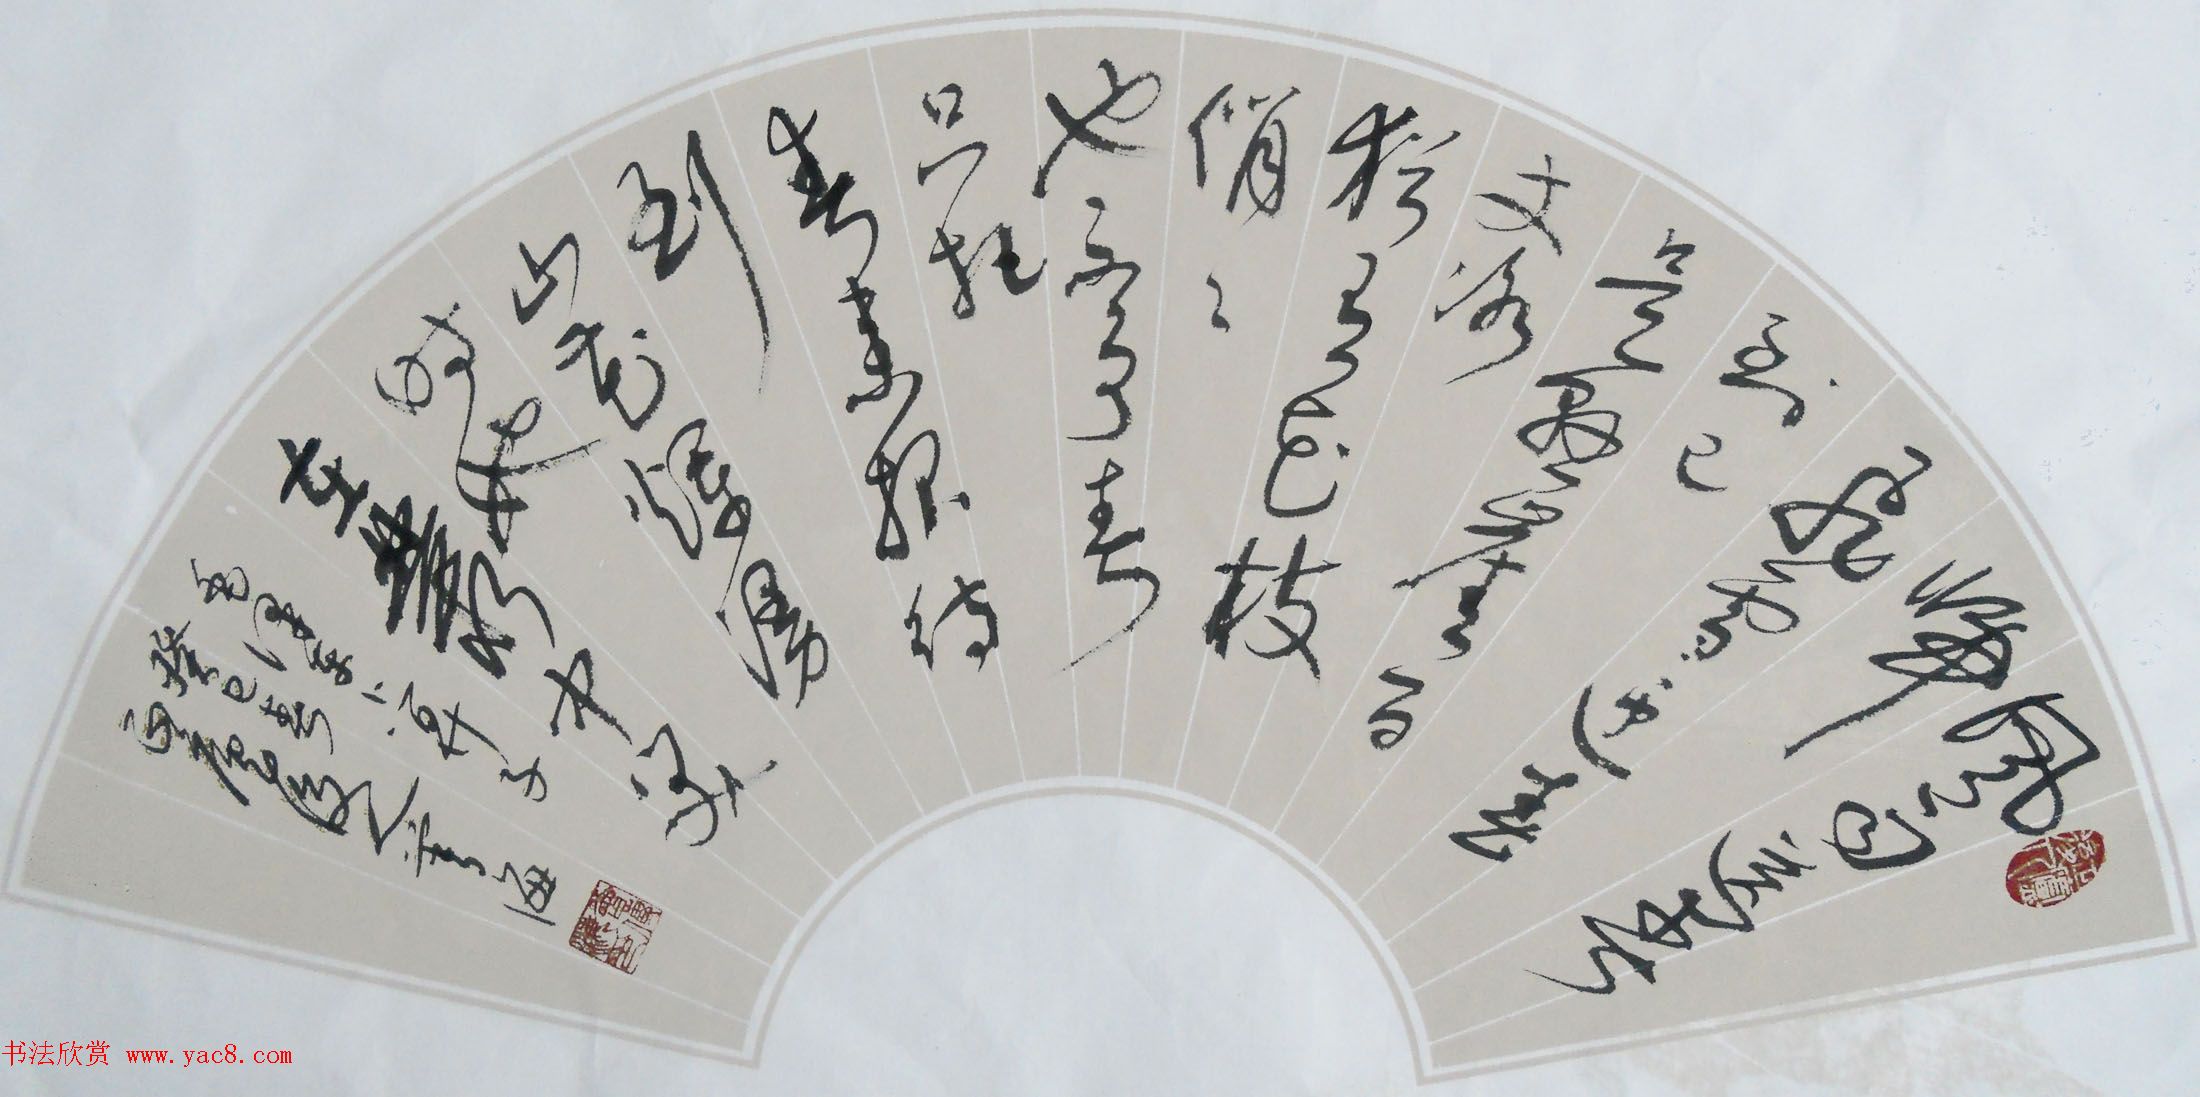 风雨送春归
飞雪迎春
到已
是悬崖百
丈冰
犹有花枝
俏々
也不争春
只把
春来报待
到
山花烂漫
时她
在丛中笑
毛泽东卜算子
癸巳春
书法欣赏 www.yac8.com